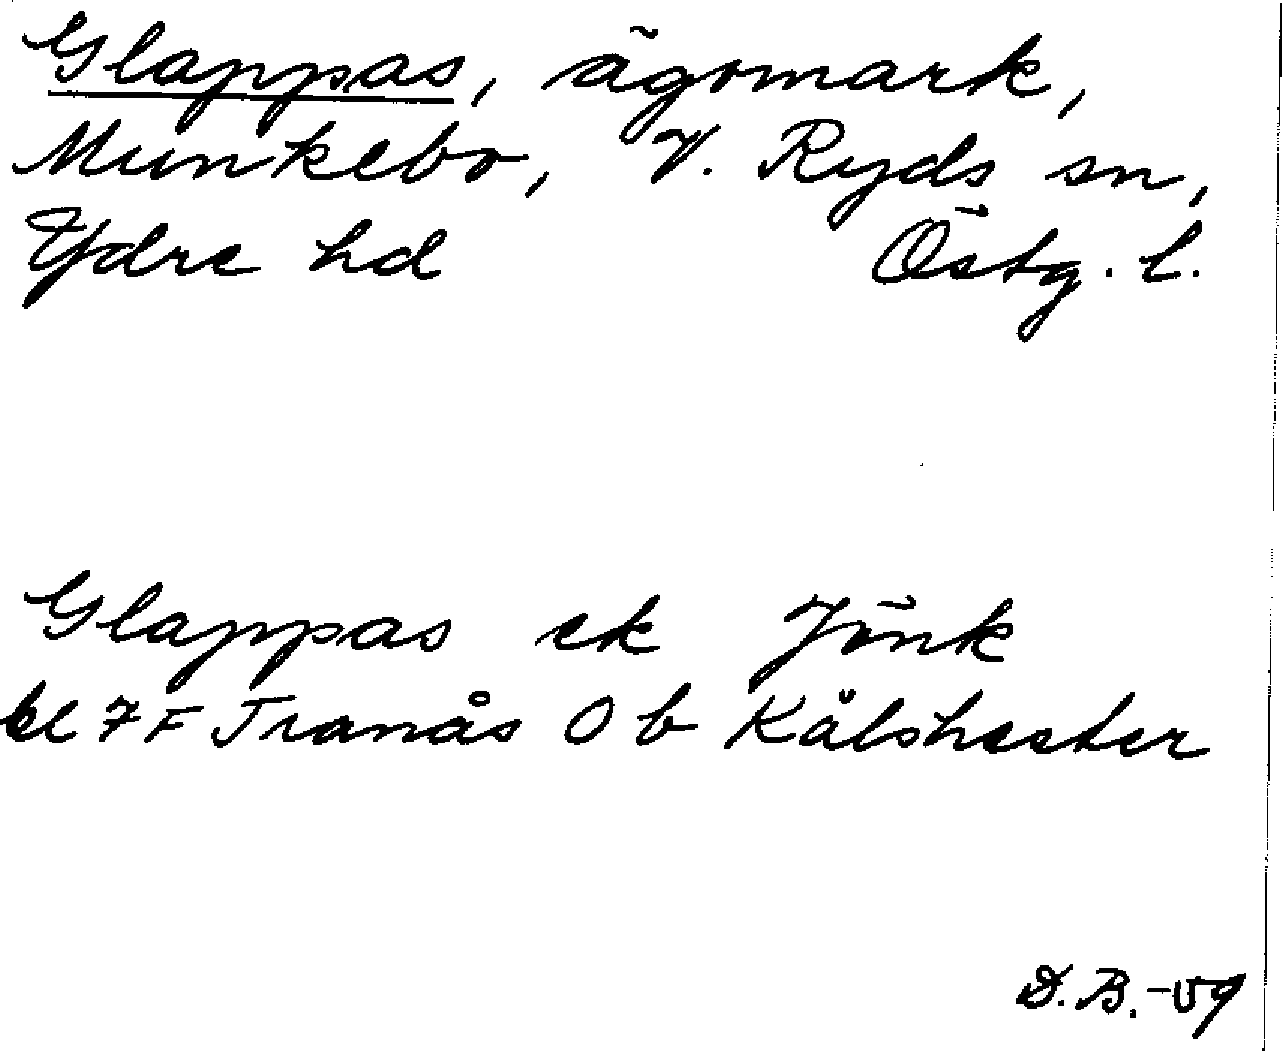 Glappas, ägomark,
Munkebo, V. Ryds sn,
Ydre hd Östg. l.
Glappas ek Jönk
bl 7 F Tranås O b Kålshester
D. B. -59